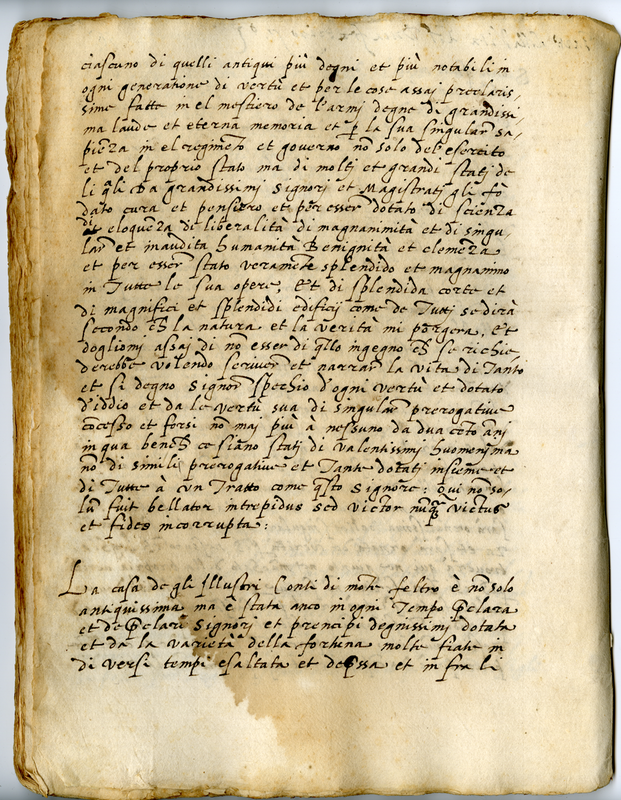 ciascuno di quelli antiqui più degni et più notabili in
ogni generatione di vertù et per le cose assai preclaris,
sime fatte in el mestiero de l'armi degne di grandissi,
ma laude et eterna memoria et p̱ la sua singular sa,
piēza in el regimēto et governo nō solo del' esercito
et del proprio stato ma di molti et grandi stati de
li q̄li da grandissimi Signori et Magistrati gli fō
dato cura et pensiero et per esser dotato di scienza
di et eloquēza di liberalità di magnanimità et di singu,
lar et inaudita humanità Benignità et clemēza
et per esser stato veramēte splendido et magnanimo
in Tutte le sua opere, Et di splendida corte et
di magnifici et splendidi edificij come de Tutti se dirà
secondo ch̄ la natura et la verità mi porgera, Et
doglionj assaj di nō esser di q̄llo ingegno ch̄ se richie,
derebbe volendo scriver et narrar la vita di Tanto
et si degno Signor spechio d'ogni vertù et dotato
d'iddio et da le vertù sua di singular prerogative
cōcesso et forsi nō maj più à nessuno da dua cēto anj
in qua bench̄ ce siano statj di valentissimj huomenj ma
nō di similj prerogative et Tante dotatj insieme et
di Tutte à un Tratto come q̄sto Signore: Qui nō so,
lū fuit bellator intrepidus sed victor nūq̄ victus
et fides incorrupta:
La casa de gli Illustri Conti di mōte feltro è nō solo
antiquissima ma è stata anco in ogni Tempo p̱clara
et de p̱clari Signorj et prencipi degnissimj dotata
et da la varietà della fortuna molte fiate in
di versi tempi esaltata et dep̱ssa et infra li